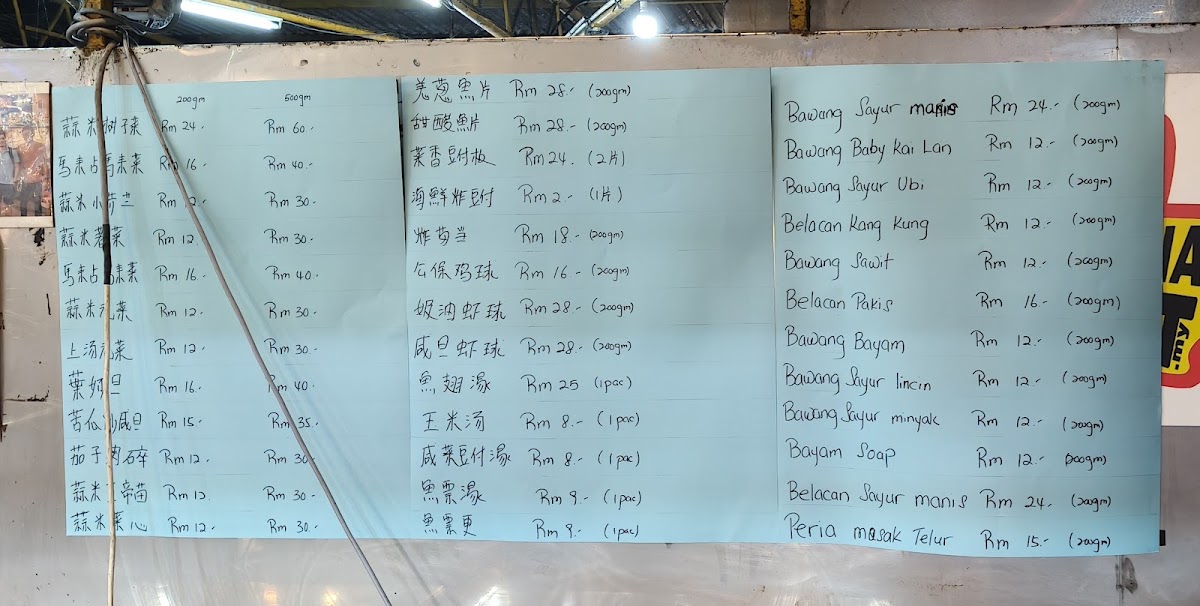 200gm 500gm
蒜米树子菜 Rm 24. Rm 60.-
馬来占馬来菜 Rm 16 Rm 40.-
蒜米小芥兰 Rm 12.- Rm 30.-
蒜米菜 Rm 12. Rm 30.-
馬来占菜 Rm 16. Rm 40.-
蒜米菜 Rm 12.- Rm 30.-
上汤菜 Rm 12.- Rm 30.-
旦 Rm 16. Rm 40.-
苦瓜炒咸旦 Rm 15.- Rm 35.-
茄子肉碎 Rm 12. Rm 30.-
蒜米帝苗 Rm 12. Rm 30.-
蒜米菜心 Rm 12.- Rm 30.-
羌葱魚片 Rm 28.- (200gm)
甜酸魚片 Rm 28.- (200gm)
菜香豆付板 Rm 24. (2片)
海鮮炸豆付 Rm 2.- (1片)
炸 Rm 18.- (200gm)
公保鸡球 Rm 16.- (200gm)
奶油虾球 Rm 28.- (200gm)
咸旦虾球 Rm 28.- (200gm)
魚翅湯 Rm 25 (1pac)
王米汤 Rm 8.- (1pac)
咸菜豆付湯 Rm 8.- (1pac)
魚票湯 Rm 9.- (1pac)
魚票更 Rm 9.- (1pac)
Bawang Sayur manis Rm 24.- (200gm)
Bawang Baby Kai Lan Rm 12.- (200gm)
Bawang Sayur Ubi Rm 12.- (200gm)
Belacan Kang Kung Rm 12.- (200gm)
Bawang Sawit Rm 12.- (200gm)
Belacan Pakis Rm 16.- (200gm)
Bawang Bayam Rm 12.- (200gm)
Bawang Sayur lincin Rm 12.- (200gm)
Bawang Sayur minyak Rm 12.- (200gm)
Bayam Soap Rm 12.- (200gm)
Belacan Sayur manis Rm 24.- (200gm)
Peria masak Telur Rm 15.- (200gm)